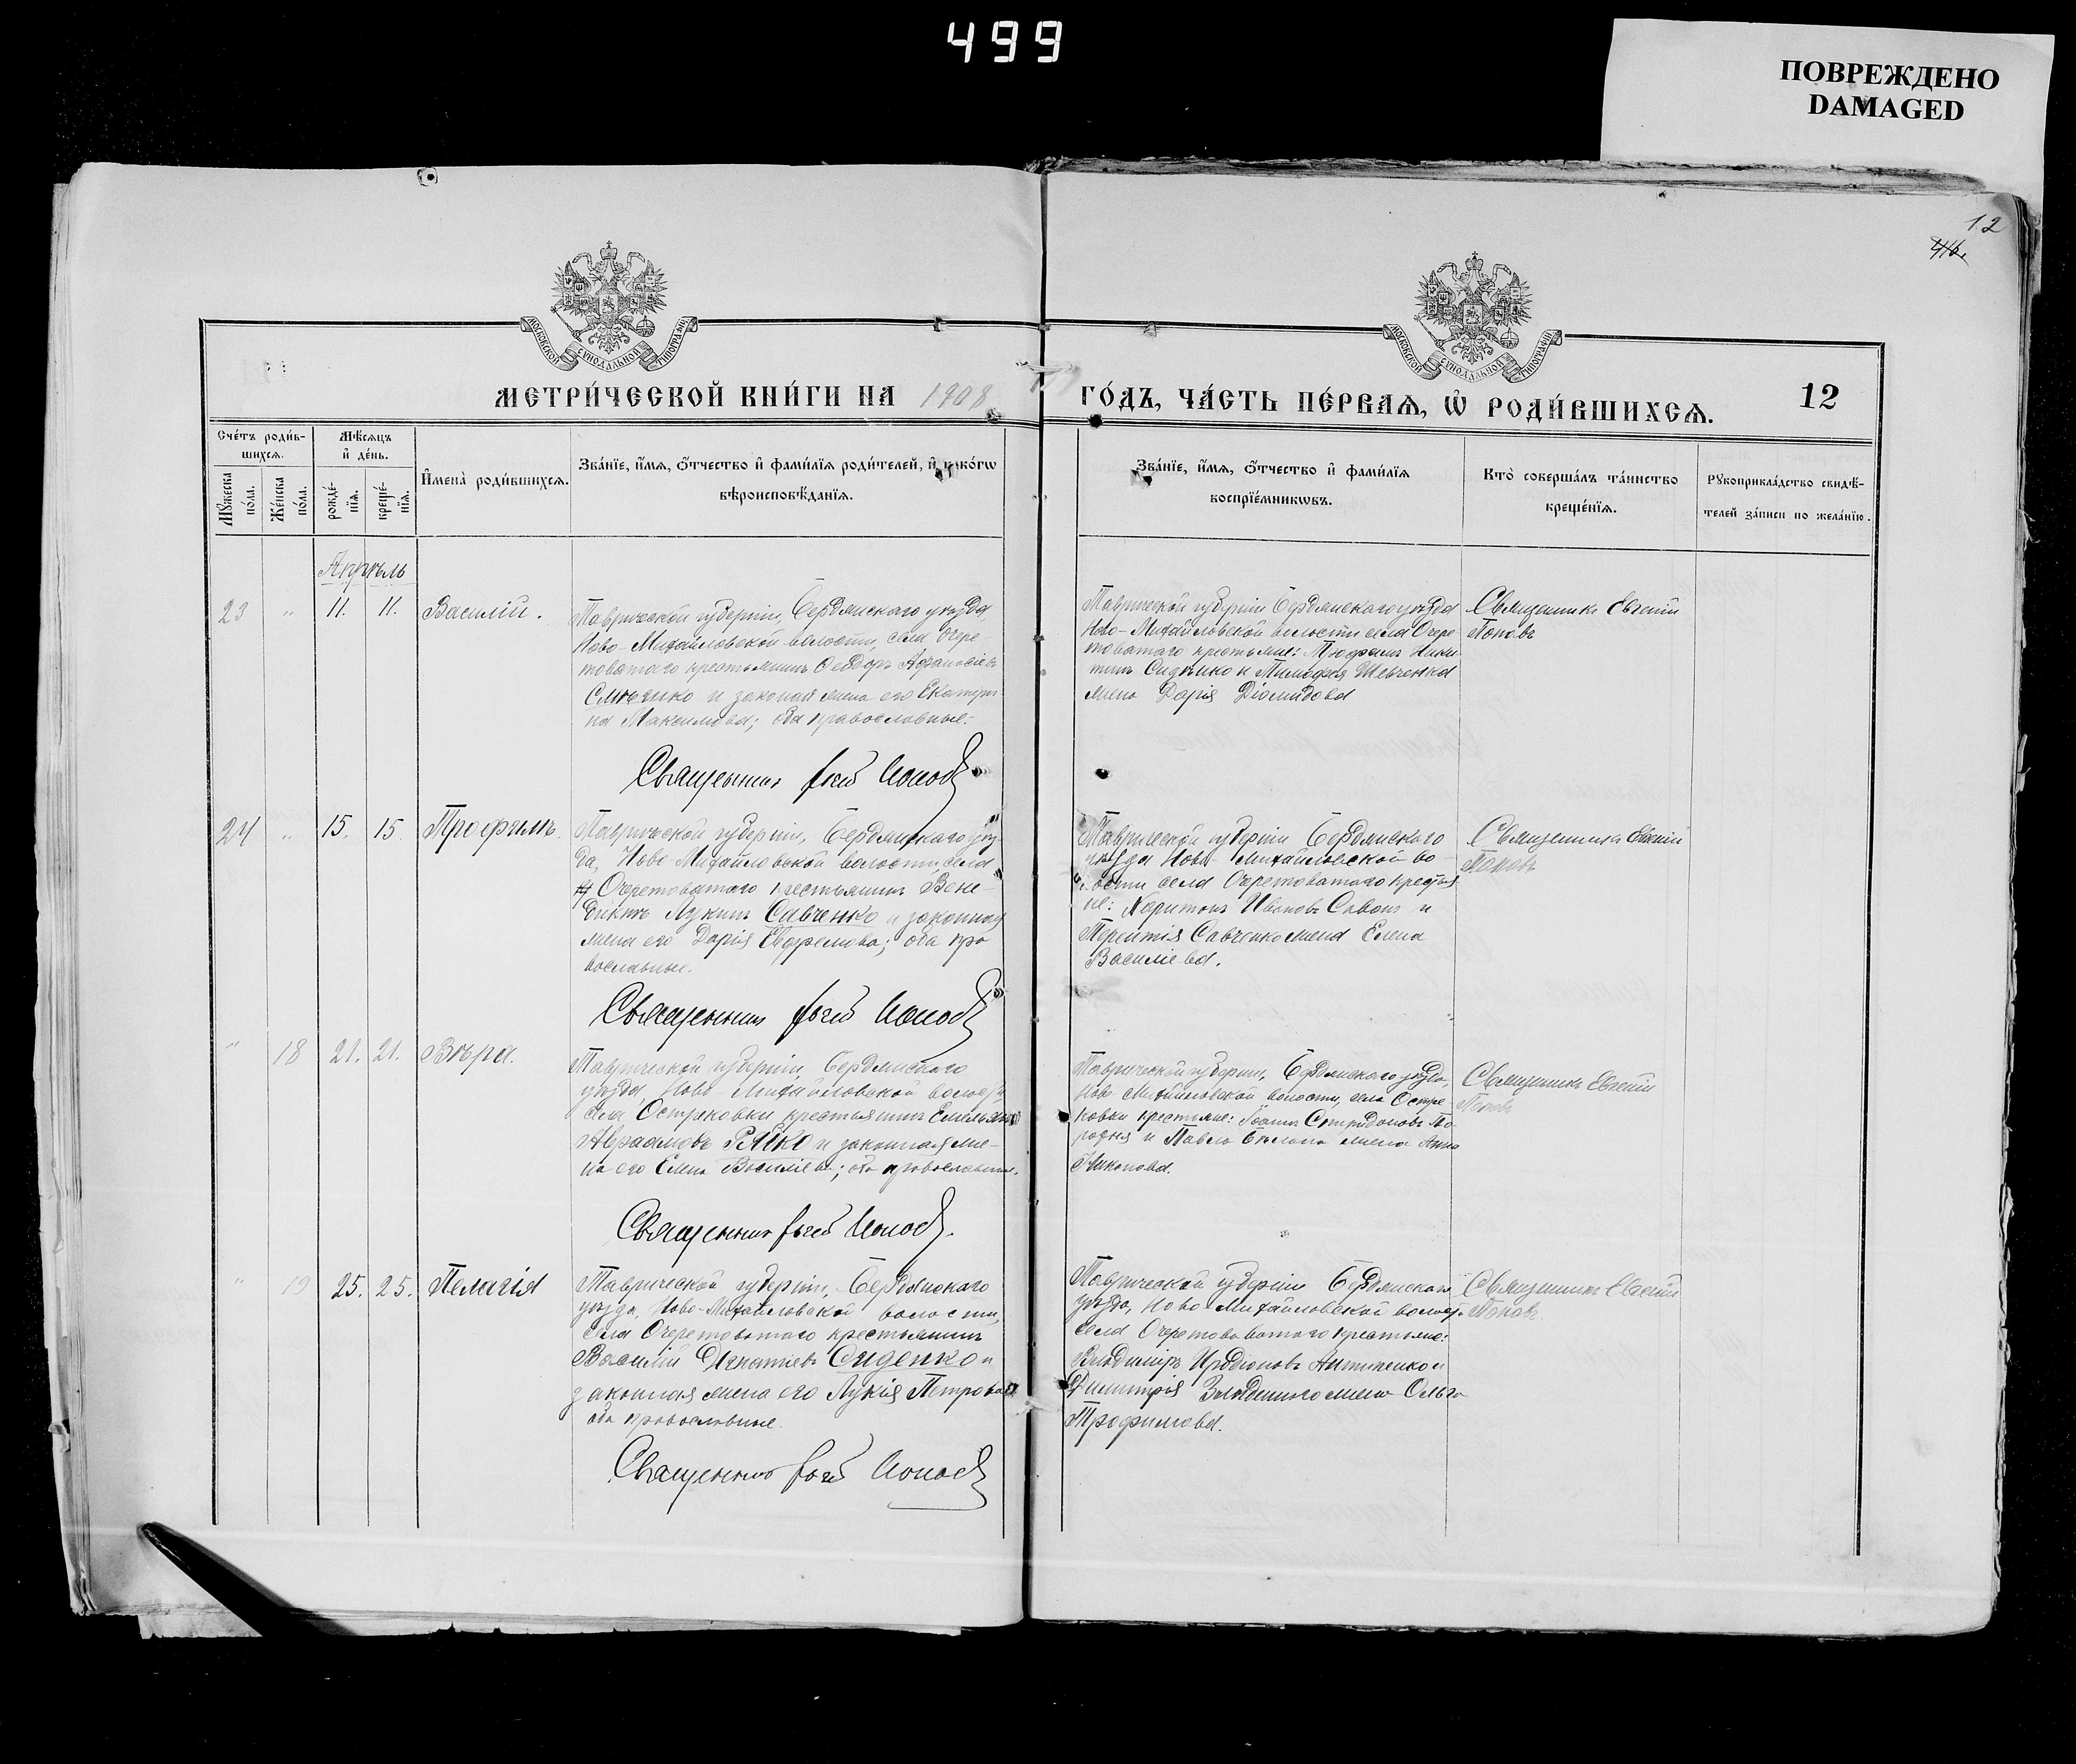 499
ПОВРЕЖДЕНО
DAMAGED
12
МОСКОВСКОЙ СѴНОДАЛЬНОЙ ТИПОГРАФІИ
МОСКОВСКОЙ СѴНОДАЛЬНОЙ ТИПОГРАФІИ
МЕТРИ́ЧЕСКОЙ КНИ́ГИ НА 1908
ГО́ДЪ, ЧА́СТЬ ПЕ́РВАѦ, Ѡ҆ РОДИ́ВШИХСѦ.
12
Сче́тъ роди́в-
шихсѧ.
Мꙋ́жеска по́ла.
Же́нска по́ла.
Мѣ́сѧцъ
и҆ де́нь.
рожде́-
нїѧ.
креще́-
нїѧ.
И҆мена̀ роди́вшихсѧ.
Зва́нїе, и҆́мѧ, ѻ҆́тчество и҆ фами́лїѧ роди́телей, и҆ како́гѡ
вѣроисповѣ́данїѧ.
Зва́нїе, и҆́мѧ, ѻ҆́тчество и҆ фами́лїѧ
воспрїе́мникѡвъ.
Кто̀ соверша́лъ та́инство
креще́нїѧ.
Рꙋкоприкла́дство свидѣ́-
телей за́писи по жела́нїю.
Апрѣль
23 " 11. 11. Василій.
Таврической губерніи, Бердянскаго уѣзда,
Ново-Михайловской волости, села Очере
товатаго крестьянинъ Ѳеодоръ Аѳанасіевъ
и законная жена его Екатери
на Максимова; оба православные.
Священникъ Евгеній Поповъ
Таврической губерніи Бердянскаго уѣзда
Ново-Михайловской волости села Очере
товатаго крестьяне: Ники
тинъ и Тимоѳея Шевченка
жена Дарія Діомидова
Священникъ Евгеній
Поповъ
24 " 15. 15. Трофимъ.
Таврической губерніи, Бердянскаго уѣз-
да, Ново Михайловской волости, села
Очеретоватаго крестьянинъ Вене-
диктъ Лукинъ Савченко и законная
жена его Дарія Ефремова; оба пра
вославные.
Священникъ Евгеній Поповъ
Таврической губерніи Бердянскаго
уѣзда Ново-Михайловской во-
лости села Очеретоватаго крестья
не: Харитонъ Ивановъ и
Терентія Савченко жена Елена
Василіева.
Священникъ Евгеній
Поповъ
" 18 21. 21. Вѣра.
Таврической губерніи, Бердянскаго
уѣзда, Ново Михайловской волости,
села Остриковки крестьянинъ Емельянъ
Авраамовъ и законная же-
на его Елена Василіева; оба православные.
Священникъ Евгеній Поповъ
Таврической губерніи, Бердянскаго уѣзда,
Ново Михайловской волости, села Остри
ковки крестьяне: Іоаннъ Спиридоновъ
и Павла жена Анна
Никонова.
Священникъ Евгеній
Поповъ
" 19 25. 25. Пелагія
Таврической губерніи, Бердянскаго
уѣзда, Ново-Михайловской волости,
села Очеретоватаго крестьянинъ
Василій Игнатіевъ Сиденко и
законная жена его Лукія Петрова
оба православные.
Священникъ Евгеній Поповъ
Таврической губерніи Бердянскаго
уѣзда, Ново Михайловской волост.
села Очеретоватаго крестьяне:
Владиміръ Иродіоновъ Антипенко и
Димитрія жена Ольга
Трофимова.
Священникъ Евгеній
Поповъ.